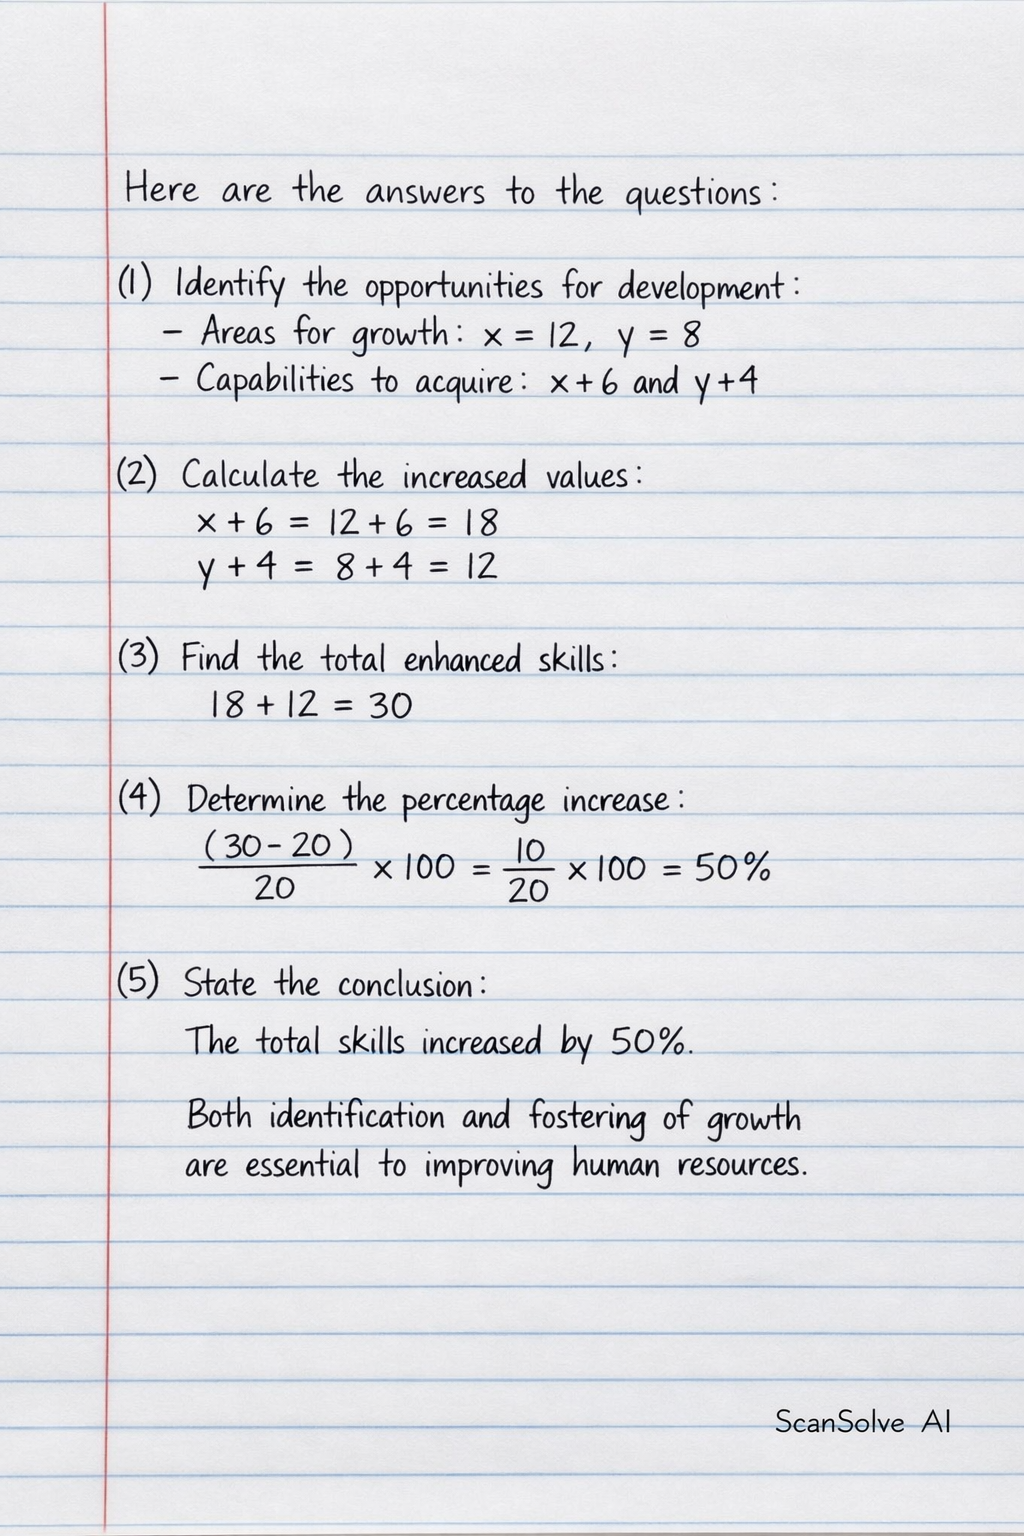 Here are the answers to the questions:
(1) Identify the opportunities for development:
– Areas for growth: x = 12, y = 8
– Capabilities to acquire: x+6 and y+4
(2) Calculate the increased values:
x + 6 = 12 + 6 = 18
y + 4 = 8 + 4 = 12
(3) Find the total enhanced skills:
18 + 12 = 30
(4) Determine the percentage increase:
(30 - 20)/20 × 100 = 10/20 × 100 = 50%
(5) State the conclusion:
The total skills increased by 50%.
Both identification and fostering of growth
are essential to improving human resources.
ScanSolve AI